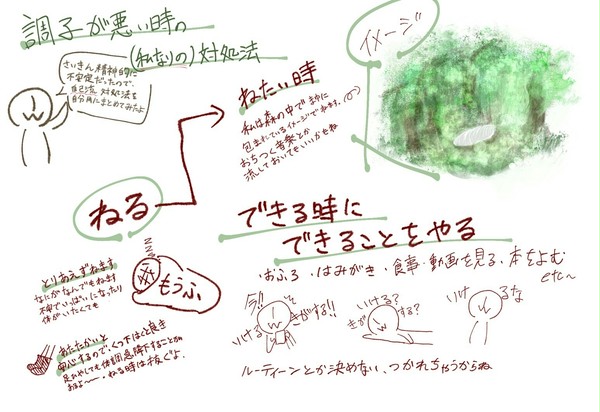 調子が悪い時の
(私なりの)対処法
さいきん精神的に
不安定だったので、
自己流 対処法を
自分用にまとめてみたよ
イメージ
ねたい時
私は森の中でまゆに
包まれているイメージでねます。
おちつく音楽とか
流しておいてもいいかもね
ねる
とりあえずねます
なにがなんでもねます
不安でいっぱいになったり
体がいたくても
もうふ
あたたかいと
安心するので、くつ下はくと良き
足ひやしても体調急降下することが
あるよ〜ー・ねる時は抜ぐよ。
できる時に
できることをやる
・おふろ ・はみがき ・食事・動画を見る・本をよむ
etc〜
今!! いける
そ きがする!!
いける?
きが する?
いけ るな
ルーティーンとか決めない、つかれちゃうからね